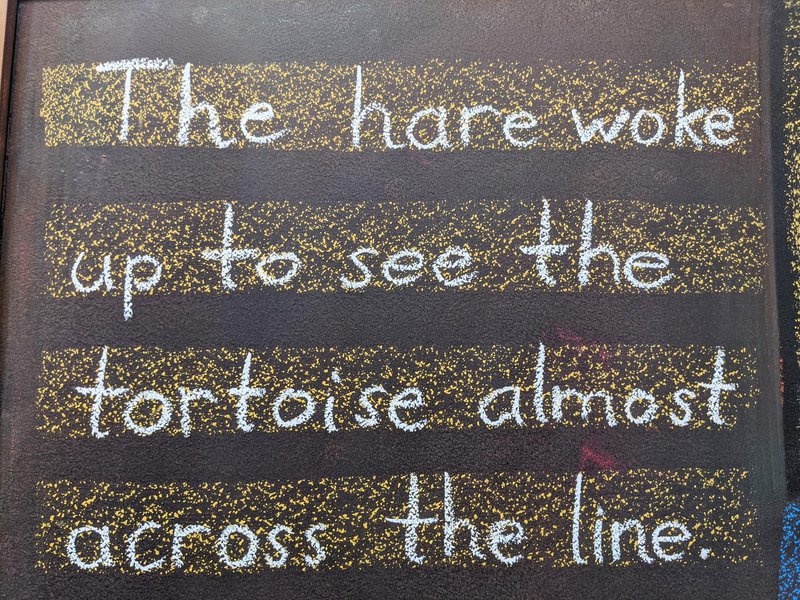 The hare woke
up to see the
tortoise almost
across the line.